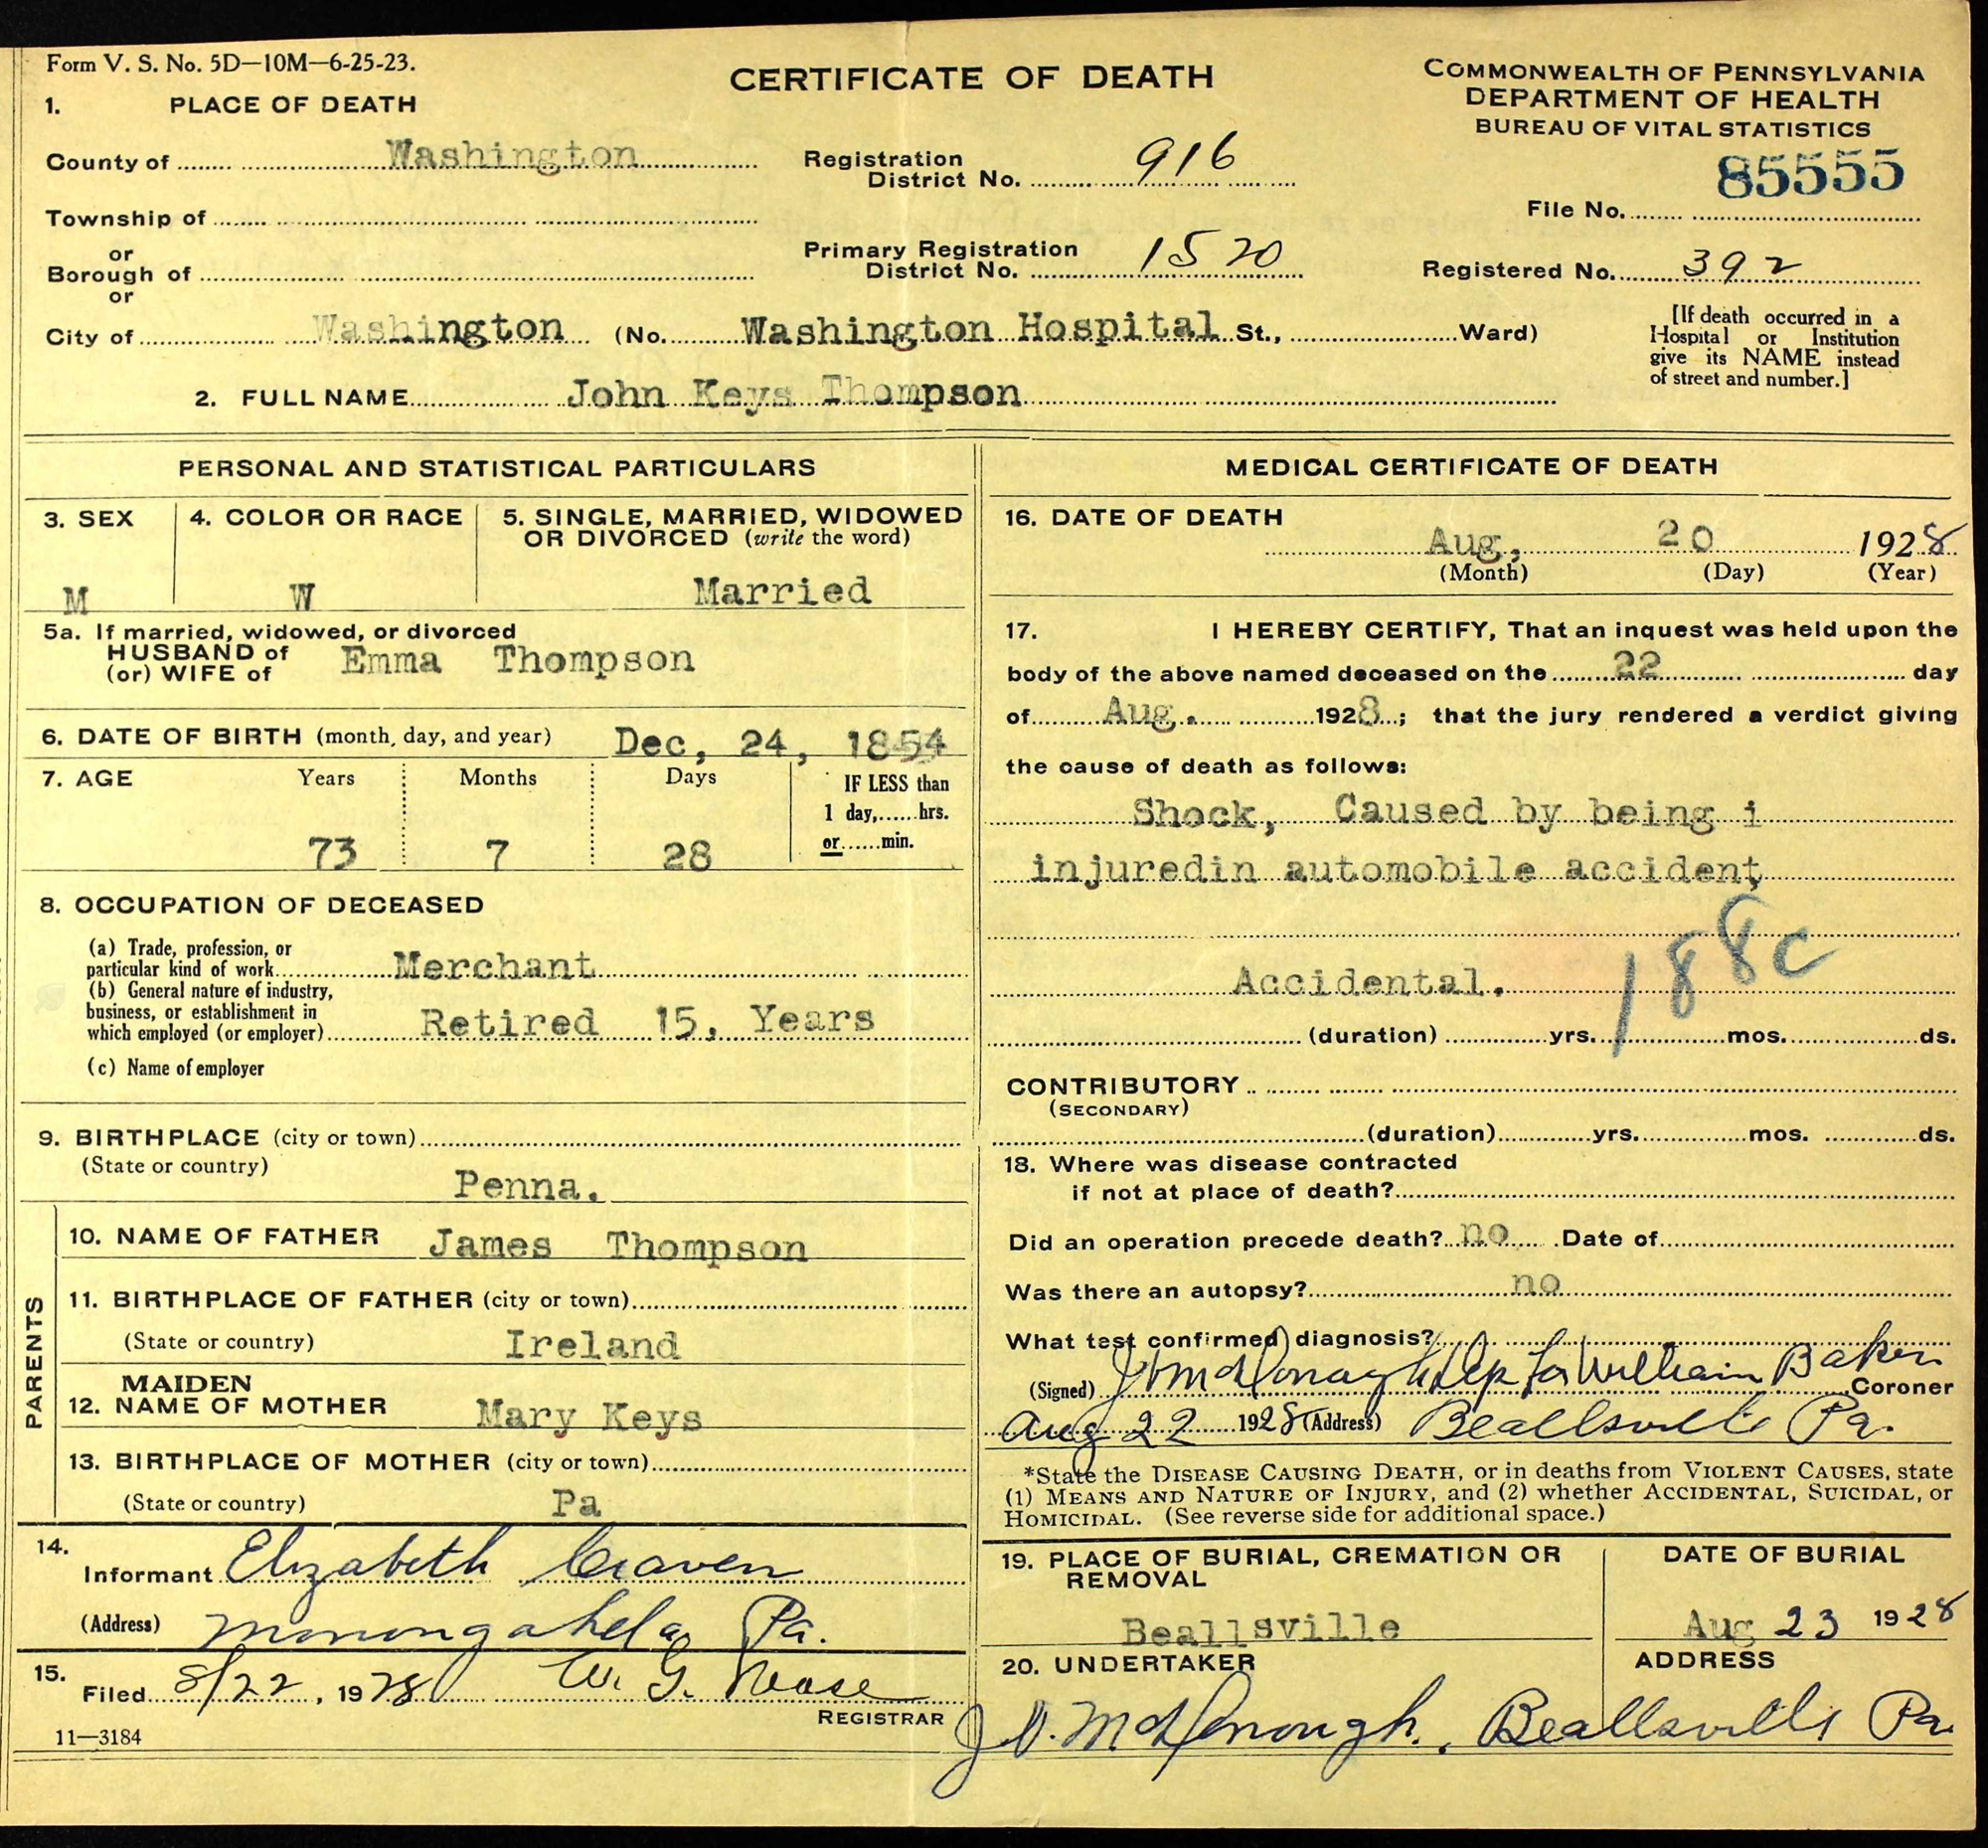 Form V. S. No. 5D—10M—6-25-23.
CERTIFICATE OF DEATH
COMMONWEALTH OF PENNSYLVANIA
DEPARTMENT OF HEALTH
BUREAU OF VITAL STATISTICS
1. PLACE OF DEATH
County of Washington
Registration District No. 916
85555
File No.
Township of
or
Borough of
or
Primary Registration District No. 1520
Registered No. 392
City of Washington (No. Washington Hospital St., Ward)
[If death occurred in a
Hospital or Institution
give its NAME instead
of street and number.]
2. FULL NAME John Keys Thompson
PERSONAL AND STATISTICAL PARTICULARS
3. SEX
M
4. COLOR OR RACE
W
5. SINGLE, MARRIED, WIDOWED
OR DIVORCED (write the word)
Married
5a. If married, widowed, or divorced
HUSBAND of
(or) WIFE of
Emma Thompson
6. DATE OF BIRTH (month, day, and year) Dec, 24, 1854
7. AGE Years Months Days
73 7 28
IF LESS than
1 day,......hrs.
or......min.
8. OCCUPATION OF DECEASED
(a) Trade, profession, or
particular kind of work Merchant
(b) General nature of industry,
business, or establishment in
which employed (or employer) Retired 15, Years
(c) Name of employer
9. BIRTHPLACE (city or town)
(State or country)
Penna.
PARENTS
10. NAME OF FATHER James Thompson
11. BIRTHPLACE OF FATHER (city or town)
(State or country) Ireland
12. MAIDEN
NAME OF MOTHER Mary Keys
13. BIRTHPLACE OF MOTHER (city or town)
(State or country) Pa
14.
Informant Elizabeth Craven
(Address) Monongahela Pa.
15.
Filed 8/22, 1928 W. G.
REGISTRAR
11—3184
MEDICAL CERTIFICATE OF DEATH
16. DATE OF DEATH
Aug, 20 1928
(Month) (Day) (Year)
17. I HEREBY CERTIFY, That an inquest was held upon the
body of the above named deceased on the 22 day
of Aug. 1928; that the jury rendered a verdict giving
the cause of death as follows:
Shock, Caused by being i
injuredin automobile accident
188c
Accidental.
(duration) yrs. mos. ds.
CONTRIBUTORY
(SECONDARY)
(duration) yrs. mos. ds.
18. Where was disease contracted
if not at place of death?
Did an operation precede death? no Date of
Was there an autopsy? no
What test confirmed diagnosis?
(Signed) McDonough Dep for William Baker Coroner
Aug 22 1928 (Address) Beallsville Pa.
*State the DISEASE CAUSING DEATH, or in deaths from VIOLENT CAUSES, state
(1) MEANS AND NATURE OF INJURY, and (2) whether ACCIDENTAL, SUICIDAL, or
HOMICIDAL. (See reverse side for additional space.)
19. PLACE OF BURIAL, CREMATION OR
REMOVAL
Beallsville
DATE OF BURIAL
Aug 23 1928
20. UNDERTAKER
ADDRESS
McDonough. Beallsville Pa.